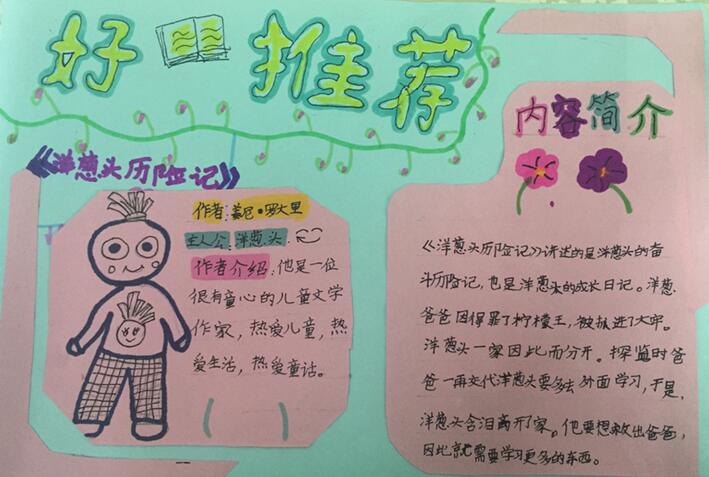 好 推荐
《洋葱头历险记》
作者:姜尼·罗大里
主人公:洋葱头.
作者介绍:他是一位
很有童心的儿童文学
作家，热爱儿童，热
爱生活，热爱童话。
内容简介
《洋葱头历险记》讲述的是洋葱头的奋
斗历险记，也是洋葱头的成长日记。洋葱
爸爸因得罪了柠檬王，被抓进了大牢。
洋葱头一家因此而分开。探监时爸
爸一再交代洋葱头要多去外面学习，于是，
洋葱头含泪离开了家。他要想救出爸爸，
因此就需要学习更多的东西。